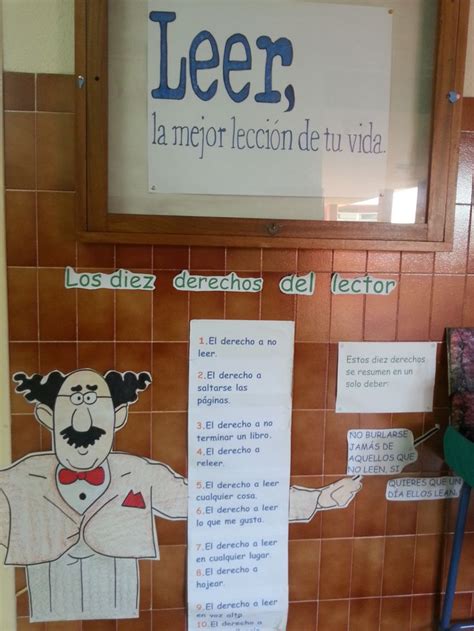 Leer,
la mejor lección de tu vida.
Los diez derechos del lector
1.El derecho a no
leer.
2.El derecho a
saltarse las
páginas.
3.El derecho a no
terminar un libro.
4.El derecho a
releer.
5.El derecho a leer
cualquier cosa.
6.El derecho a leer
lo que me gusta.
7.El derecho a leer
en cualquier lugar.
8.El derecho a
hojear.
9.El derecho a leer
en voz alta
10.El derecho a
Estos diez derechos
se resumen en un
solo deber:
NO BURLARSE
JAMÁS DE
AQUELLOS QUE
NO LEEN, SI
QUIERES QUE UN
DÍA ELLOS LEAN.